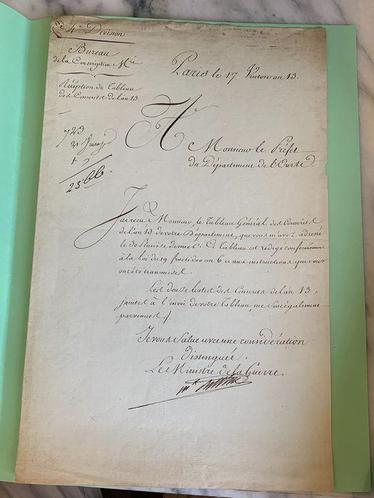 4e Division
Bureau
de la Conscription Mre
Réception du Tableau
des Conscrits de l'an 13.
Paris le 17 an 13.
723
A Monsieur le Préfet
du Département de l'Ourte
J'ai reçu Monsieur, le Tableau Général des Conscrits
de l'an 13 de votre Département, que vous m'avez adressé
le dernier. Ce Tableau est rédigé conformément
à la loi du 19 fructidor an 6 et aux instructions que vous
ont été transmises.
Les listes des Conscrits de l'an 13
jointes à l'envoi de votre Tableau, me sont également
parvenues.
Je vous Salue avec une considération
distinguée.
Le Ministre de la Guerre